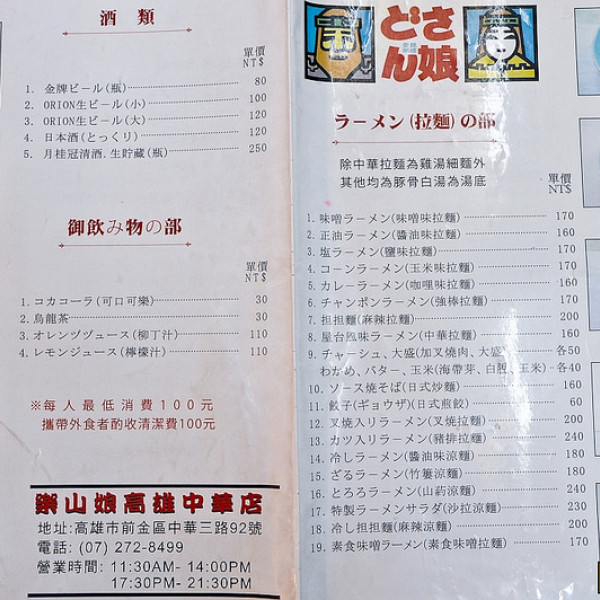 酒 類
單價
NT$
1. 金牌ビール(瓶) 80
2. ORION生ビール(小) 100
3. ORION生ビール(大) 120
4. 日本酒(とっくり) 120
5. 月桂冠清酒.生貯蔵(瓶) 250
御飲み物の部
單價
NT$
1. コカコーラ(可口可樂) 30
2. 烏龍茶 30
3. オレンヅヅュース(柳丁汁) 110
4. レモンジュース(檸檬汁) 110
※每人最低消費100元
攜帶外食者酌收清潔費100元
樂山娘高雄中華店
地址:高雄市前金區中華三路92號
電話: (07) 272-8499
營業時間: 11:30AM- 14:00PM
17:30PM- 21:30PM
どさん娘
ラーメン(拉麵)の部
除中華拉麵為雞湯細麵外
其他均為豚骨白湯為湯底
單價
NT$
1. 味噌ラーメン(味噌味拉麵) 170
2. 正油ラーメン(醬油味拉麵) 160
3. 塩ラーメン(鹽味拉麵) 170
4. コーンラーメン(玉米味拉麵) 170
5. カレーラーメン(咖哩味拉麵) 160
6. チャンポンラーメン(強棒拉麵) 170
7. 担担麵(麻辣拉麵) 200
8. 屋台風味ラーメン(中華拉麵) 160
9. チャーシュ、大盛(加叉燒肉、大盛) 各50
わかめ、バター、玉米(海帶芽、白脫、玉米) 各40
10. ソース焼そば(日式炒麵) 160
11. 餃子(ギョウザ)(日式煎餃) 60
12. 叉焼入りラーメン(叉燒拉麵) 200
13. カツ入りラーメン(豬排拉麵) 240
14. 冷しラーメン(醬油味涼麵) 180
15. ざるラーメン(竹簍涼麵) 180
16. とろろラーメン(山葯涼麵) 240
17. 特製ラーメンサラダ(沙拉涼麵) 230
18. 冷し担担麵(麻辣涼麵) 200
19. 素食味噌ラーメン(素食味噌拉麵) 170